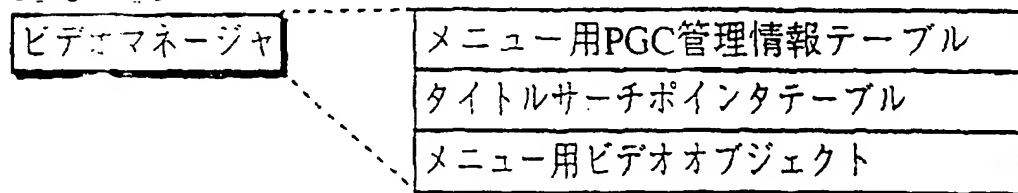 ビデオマネージャ
メニュー用PGC管理情報テーブル
タイトルサーチポインタテーブル
メニュー用ビデオオブジェクト